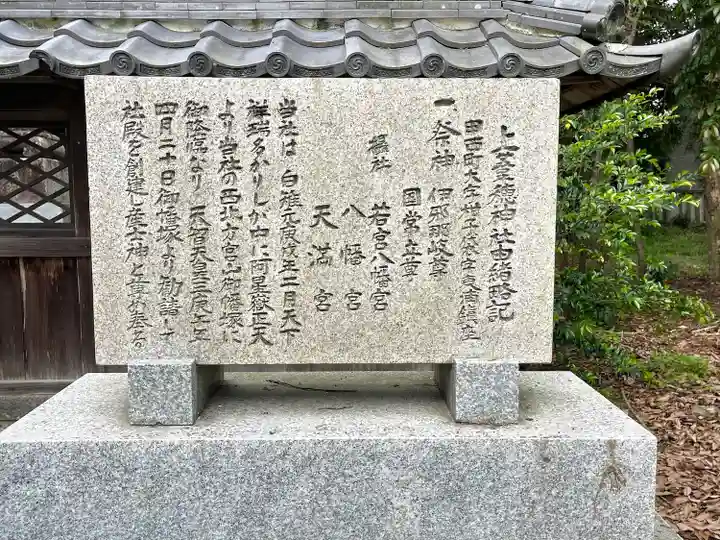 上葦穂神社由緒略記
甲西町大字柑子袋字吉浦鎮座
一祭神 伊邪那岐尊
国常立尊
摂社 若宮八幡宮
八幡宮
天満宮
当社は白雉元庚戌年二月天下
祥瑞多かりしが中に阿星嶽正天
より当社の西北方宮山御幡塚に
御降臨なり天智天皇三庚土五
四月二十日御幡塚より勧請し
社殿を創建し産土神と崇め奉る